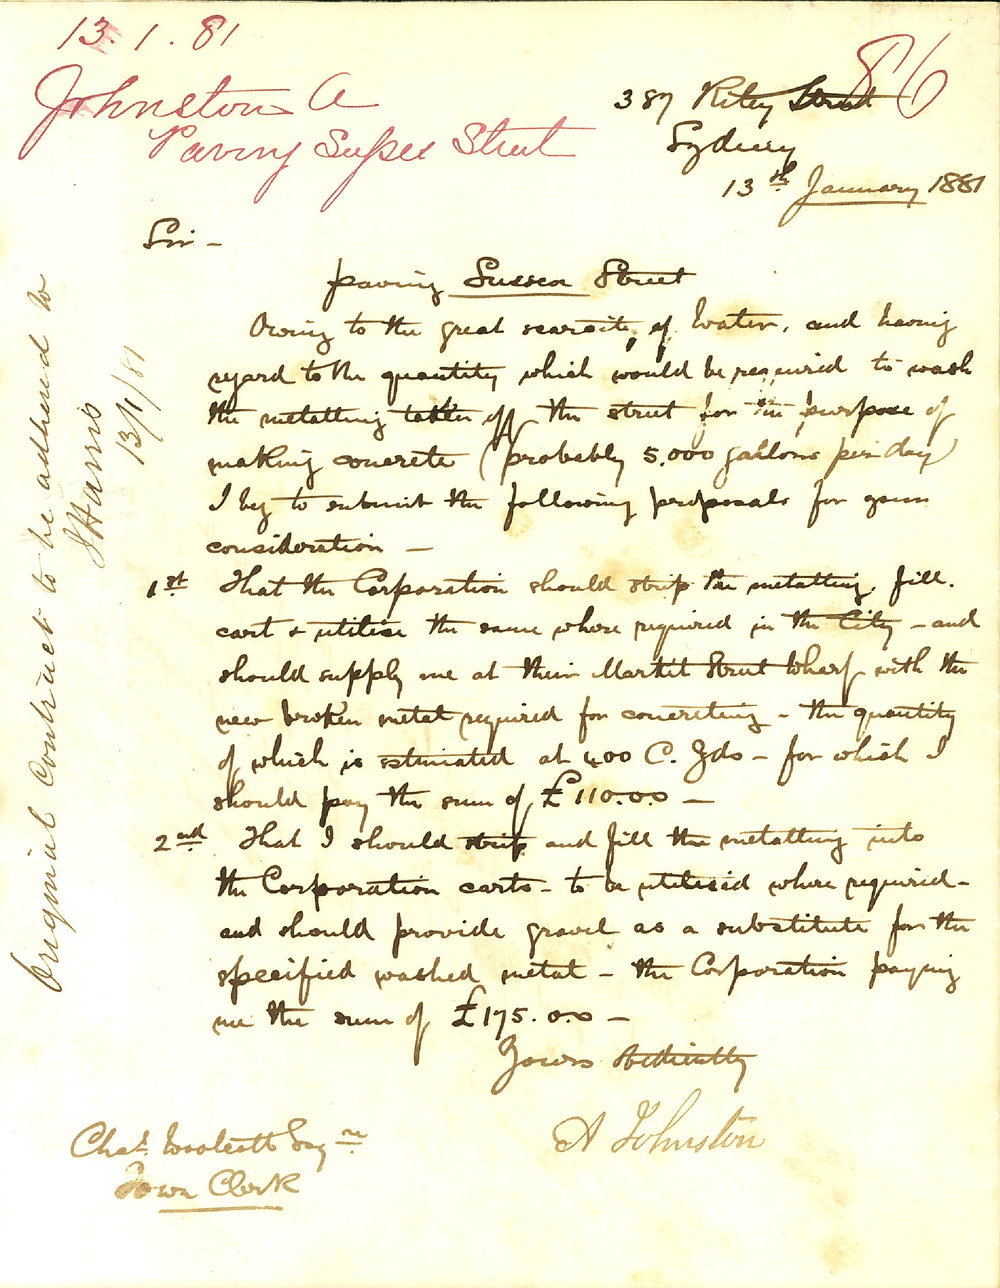 13.1.81
Johnston A
Paving Sussex Street
86
387 Riley Street
Sydney
13th January 1881
Sir -
paving Sussex Street
Owing to the great scarcity of water, and having
regard to the quantity which would be required to wash
the metalling taken off the street for the purpose of
making concrete (probably 5,000 gallons per day)
I beg to submit the following proposals for your
consideration -
1st That the Corporation should strip the metalling, fill.
cart & utilise the same where required in the City - and
should supply me at their Market Street Wharf with the
new broken metal required for concreting - the quantity
of which is estimated at 400 C. Yds - for which I
should pay the sum of £110.0.0 -
2nd That I should strip and fill the metalling into
the Corporation carts - to be utilised where required -
and should provide gravel as a substitute for the
specified washed metal - the Corporation paying
me the sum of £175.0.0 -
Yours Obediently
A Johnston
Chas. Woolcott Esqre
Town Clerk
Original Contract to be adhered to
J Harris
13/1/81